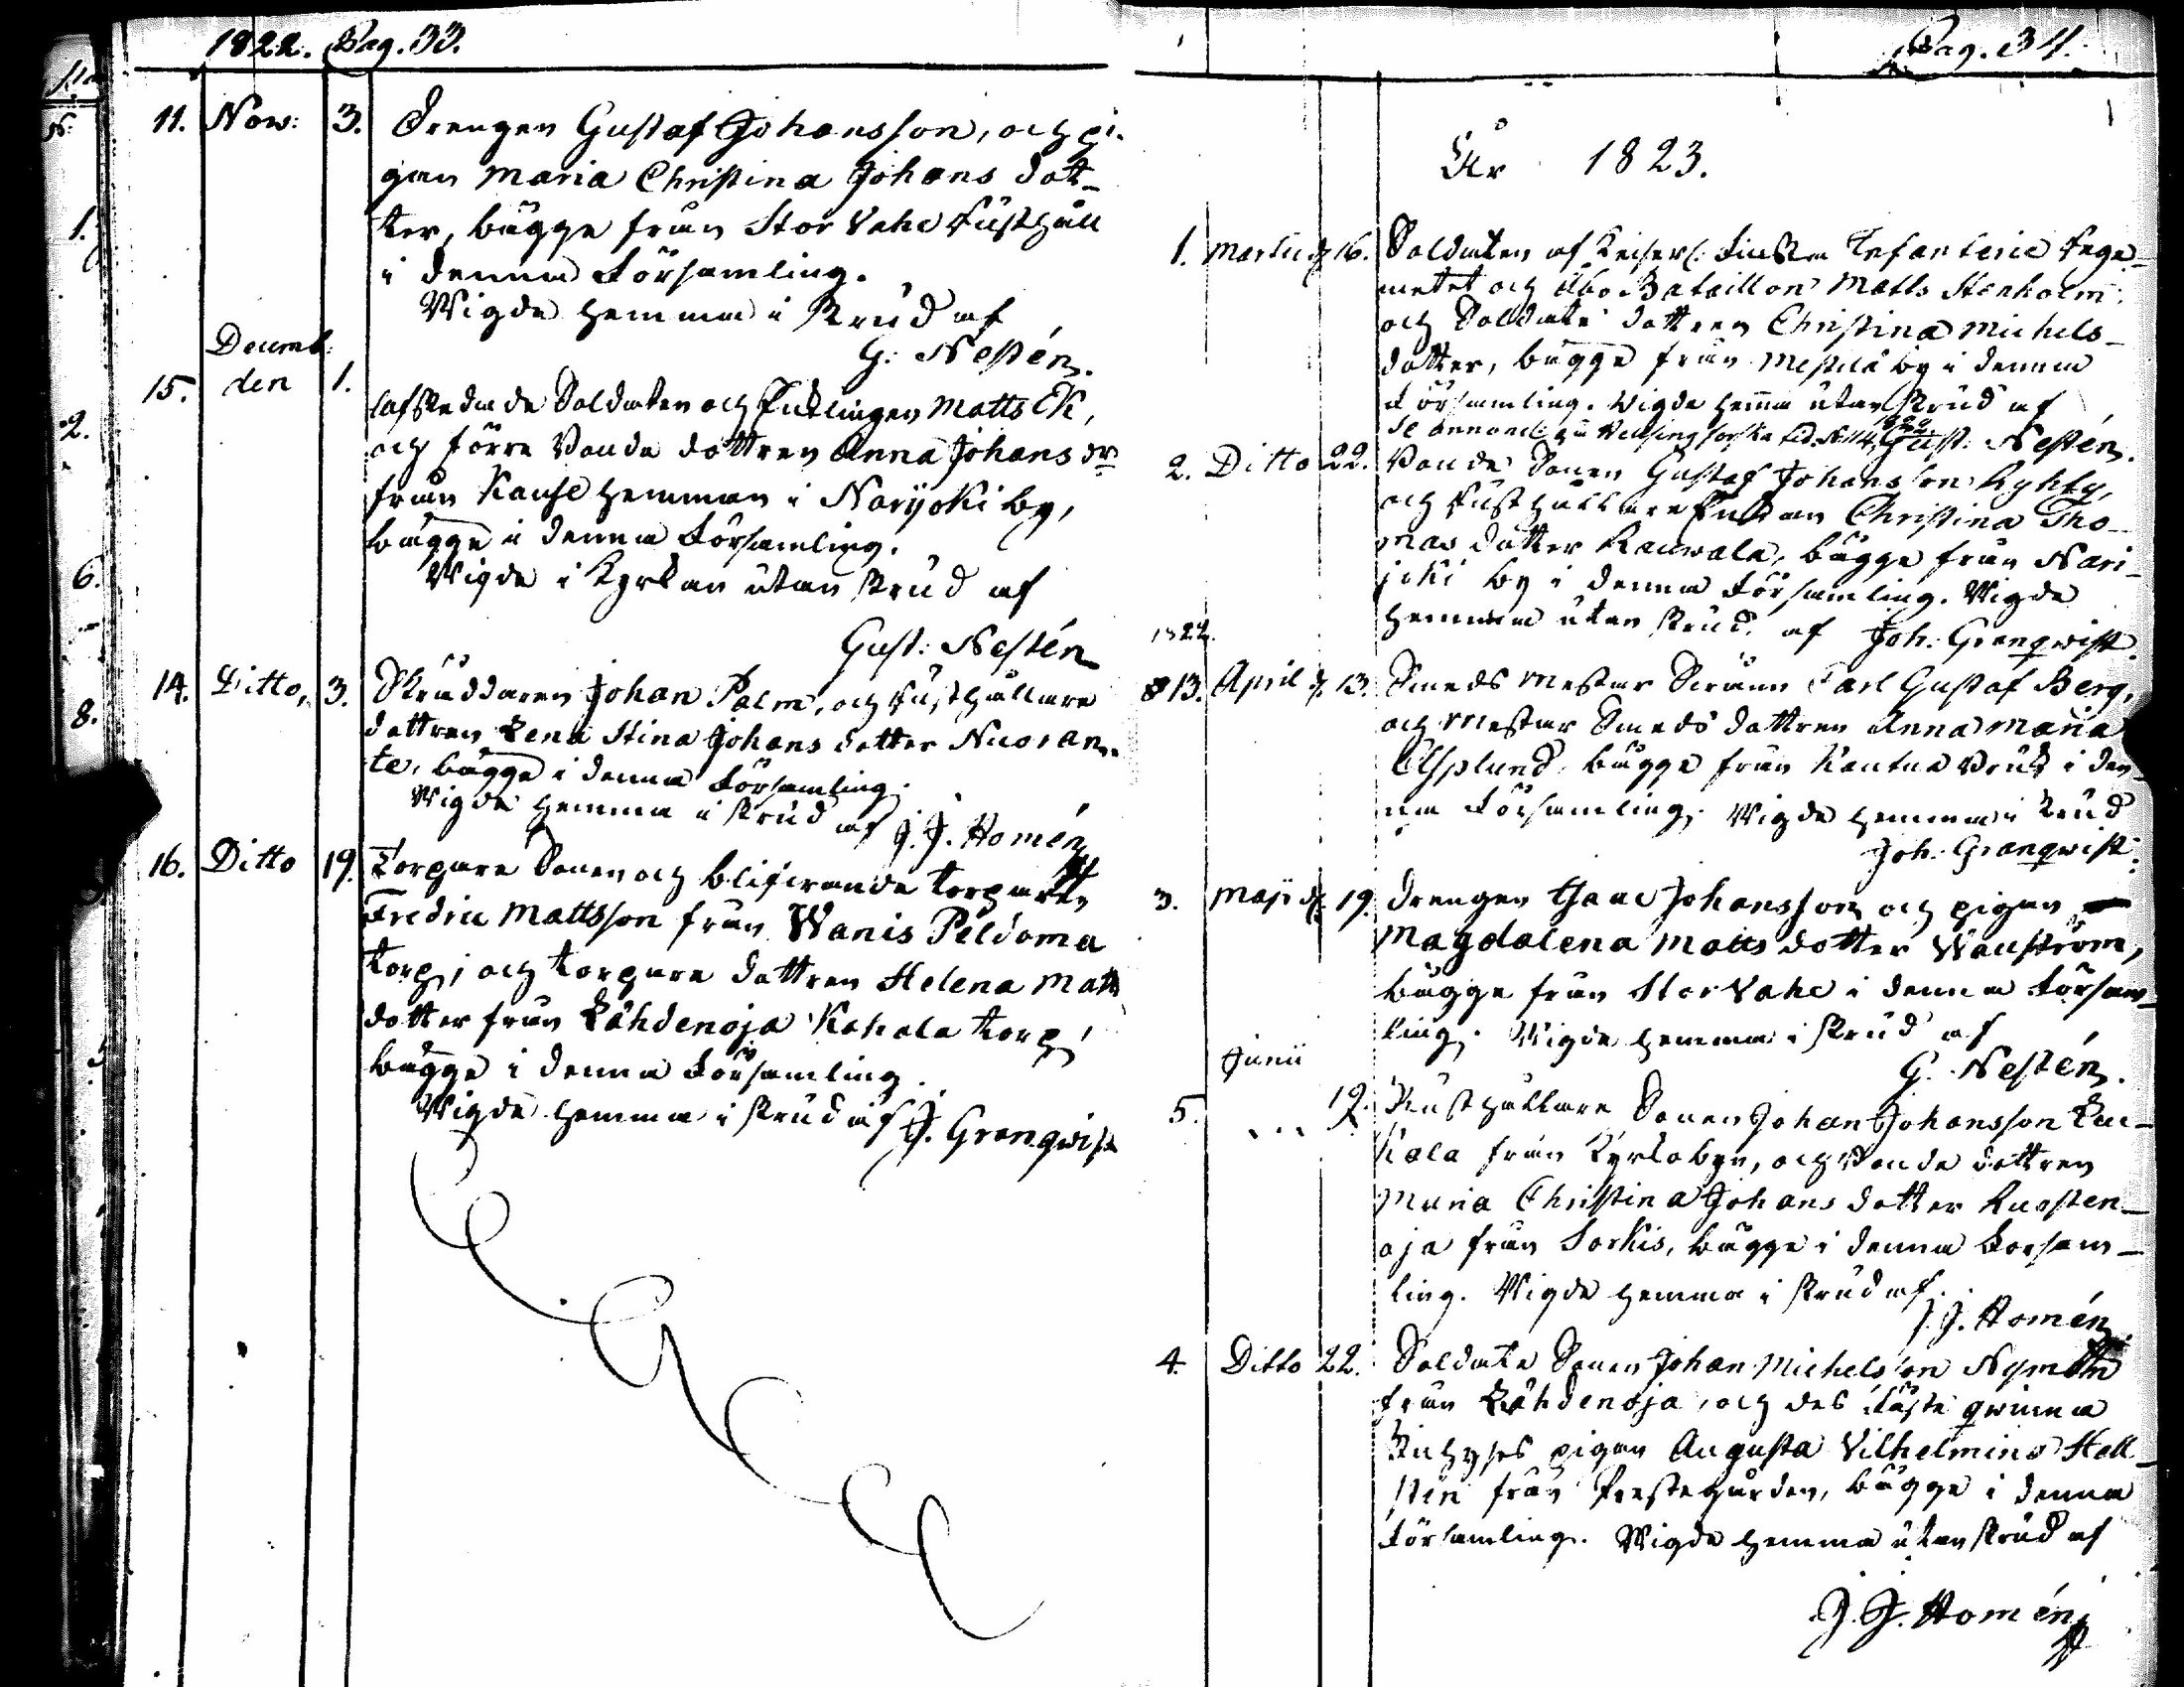 1822. Pag. 33.
11. Nov: 3. Drengen Gustaf Johansson, och pi-
gan Maria Christina Johans dot-
ter, bägge från Stor Vahe Rusthåll
i denna Församling.
Wigde hemma i skrud af
G: Nestén.
Decemb:
15. den 1. afskedade Soldaten och Enklingen Matts Ek,
och förre Bonde dottren Anna Johans dr
från Kause hemman i Narjoki by,
bägge i denna Församling.
Wigde i Kyrkan utan skrud af
Gust: Nestén
14. Ditto, 3. Skräddaren Johan Palm, och Rusthållare
dottren Lena Stina Johans dotter Nuoran-
te, bägge i denna Församling.
Wigde hemma i skrud af J. J. Homén
16. Ditto 19. Torpare Sonen och blifvande torparen
Fredric Mattsson från Wanis Peldoma
torp, och torpare dottren Helena Matts
dotter från Lähdenoja Kahala torp,
bägge i denna Församling.
Wigde hemma i skrud af J. Granqwist
Pag. 34.
År 1823.
1. Martii d. 16. Soldaten af Keiserl: Finska Infanterie Rege-
mentet och Åbo Bataillon Matts Stenholm,
och Soldate dottren Christina Michels-
dotter, bägge från Mestilä by i denna
Församling. Wigde hemma utan skrud af
Gust: Nestén.
2. Ditto 22. Bonde Sonen Gustaf Johansson Kyhky,
och Rusthållare Enkan Christina Tho-
mas dotter Rauwala, bägge från Nari-
joki by i denna Församling. Wigde
hemma utan skrud. af Joh: Granqwist
1822.
13. April d. 13. Smeds Mestar Carl Gustaf Berg,
och Mestar Smeds dottren Anna Maria
Asplund bägge från Kautua Bruk i den-
na Församling. Wigde hemma i skrud
Joh: Granqwist.
3. Maji d. 19. Drengen Isaac Johansson och pigan
Magdalena Matts dotter Wanström,
bägge från Stor Vahe i denna Försam-
ling. Wigde hemma i skrud af
G. Nestén.
Junii
5. 19. Rusthållare Sonen Johan Johansson Lau-
kola från Kyrkobyn, och Bonde dottren
Maria Christina Johans dotter Ruosten-
oja från Sorkis, bägge i denna Försam-
ling. Wigde hemma i skrud af
J. J. Homén
4. Ditto 22. Soldate Sonen Johan Michelsson Nyman
från Lähdenoja, och des fäste qwinna
Inhyses pigan Augusta Vilhelmina Hell-
stén från Prestegården, bägge i denna
Församling. Wigde hemma utan skrud af
J. J. Homén